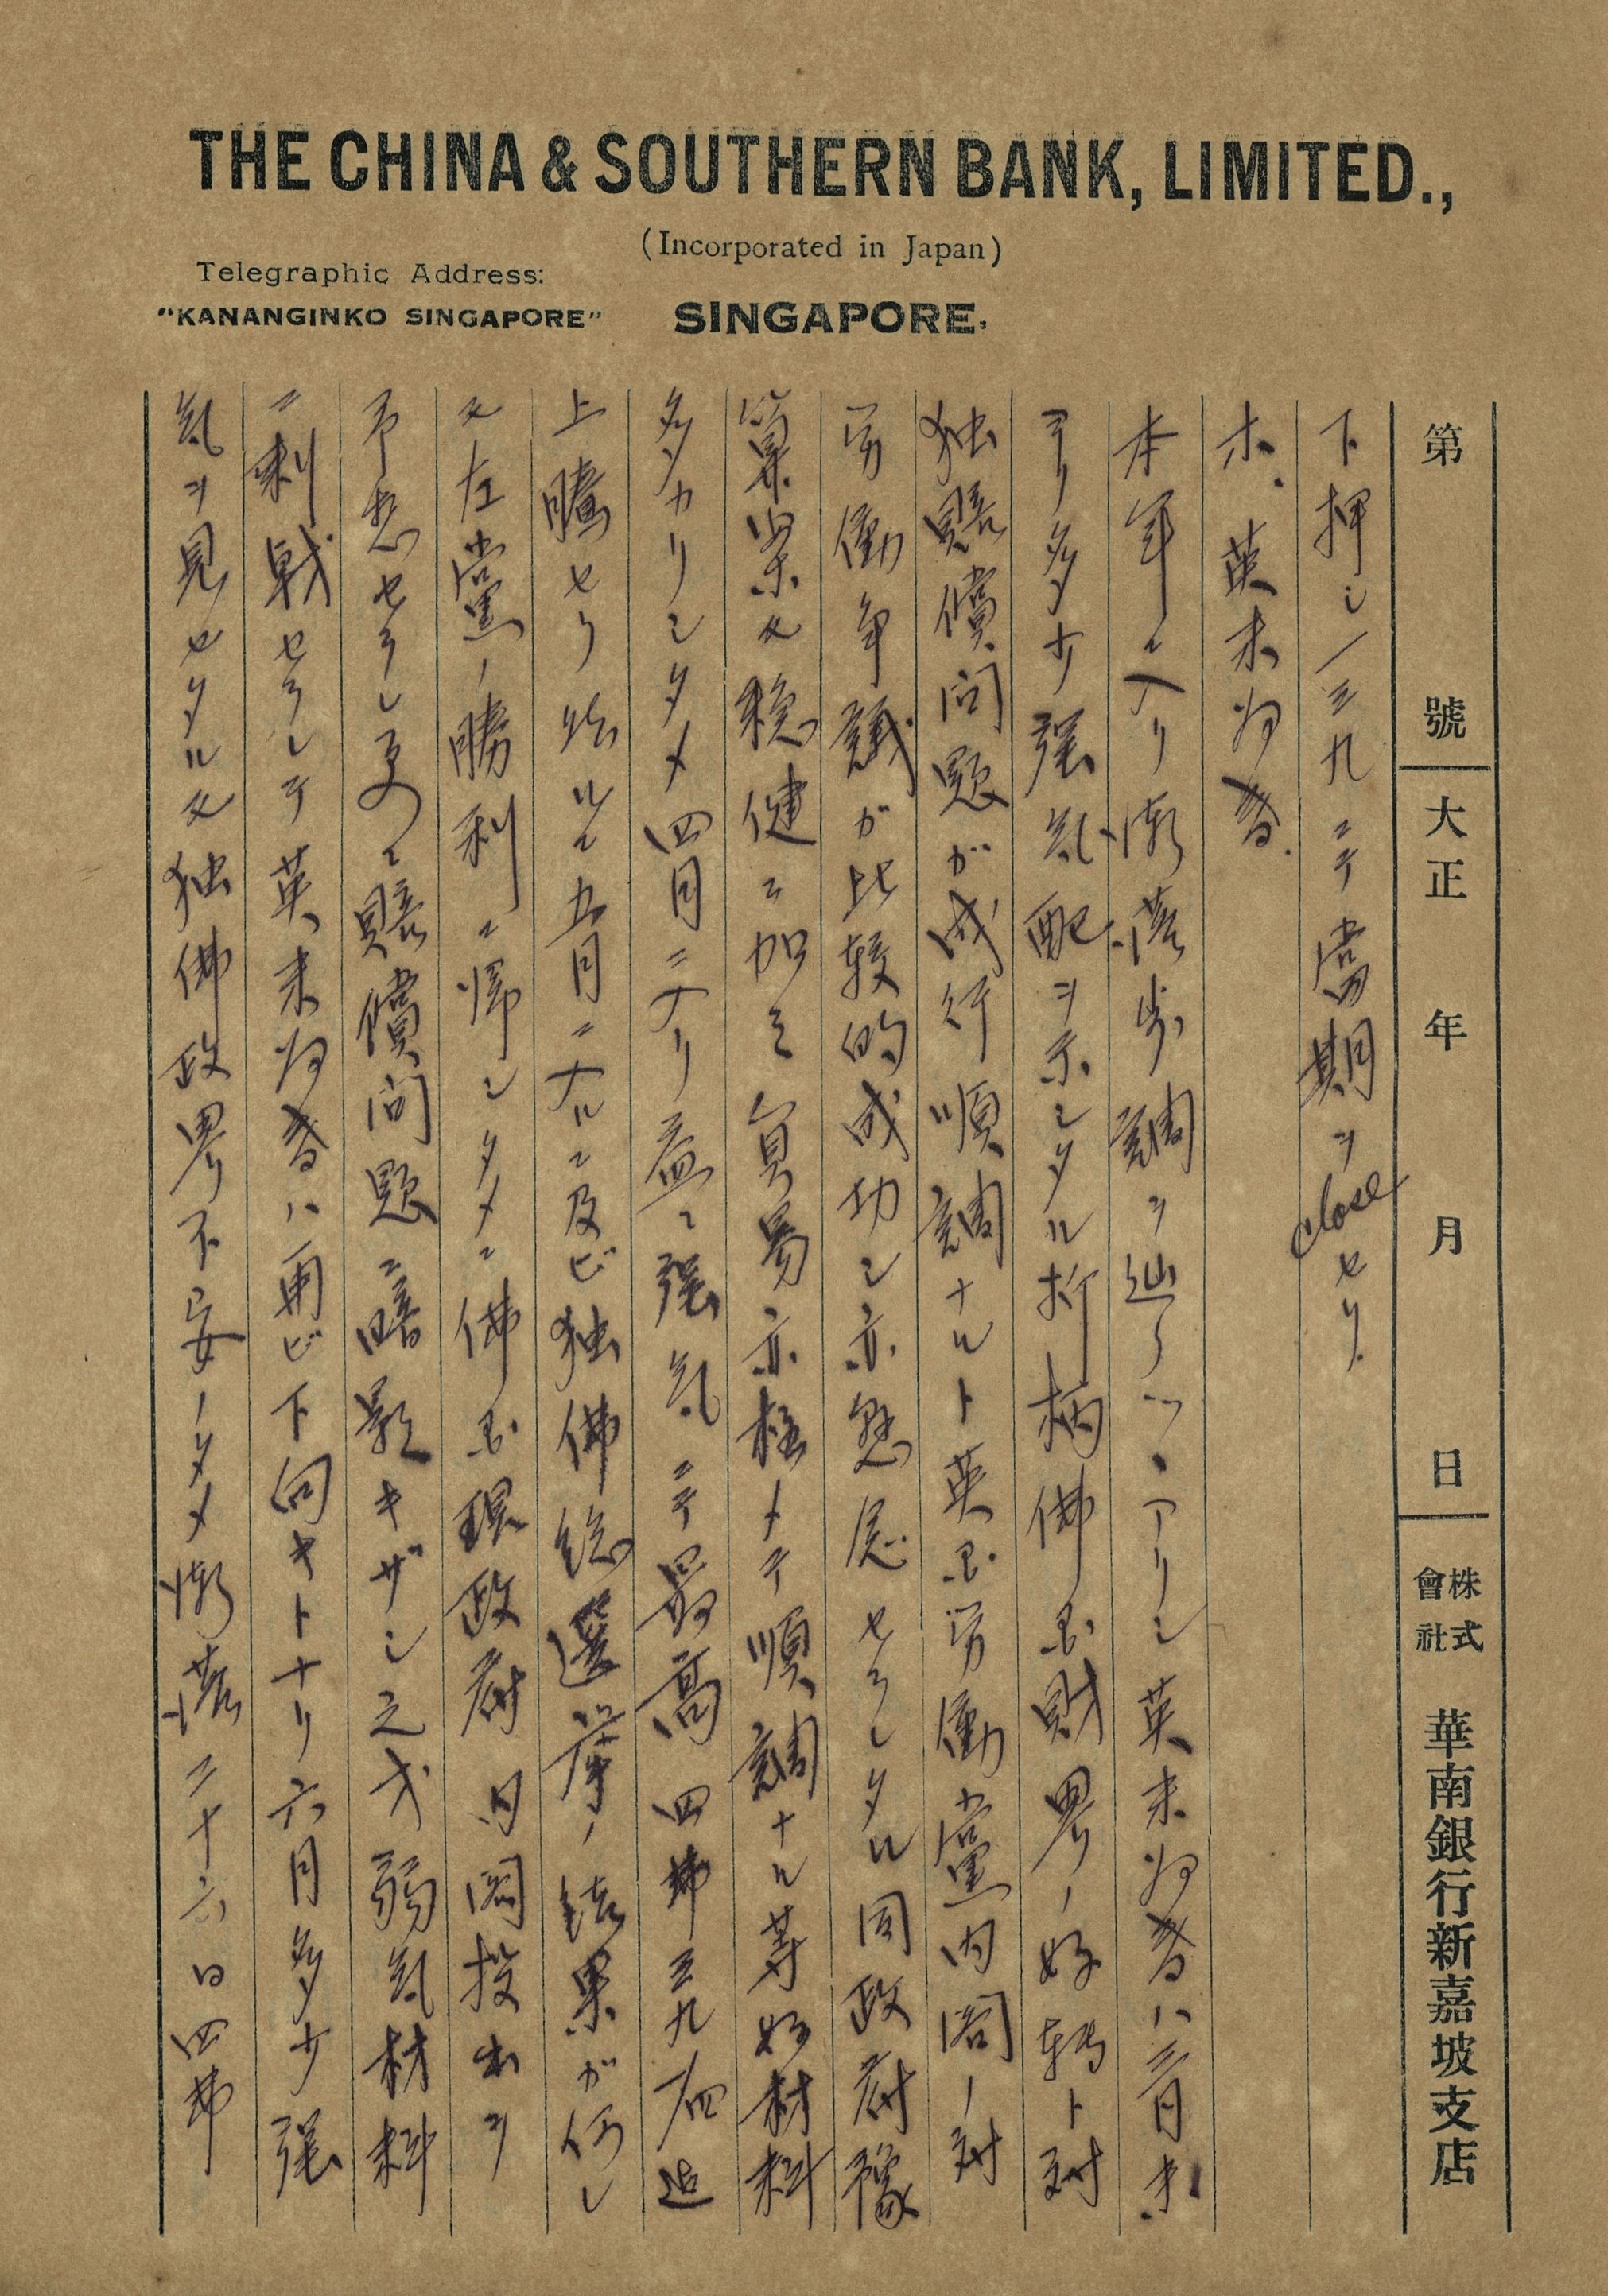 THE CHINA & SOUTHERN BANK, LIMITED.,
(Incorporated in Japan)
Telegraphic Address:
"KANANGINKO SINGAPORE"
SINGAPORE.
第 號 大正 年 月 日 株式會社 華南銀行新嘉坡支店
下押シ一三九ニテ當期ヲcloseセリ.
ホ. 英米為替.
本年ニ入リ漸落歩調ヲ辿ラツヽアリシ英米為替ハ三月末
ヨリ多少强氣配ヲ示シタル折柄佛國財界ノ好轉ト対
独賠償問題が成行順調ナルト英國労働黨内閣ノ対
労働争議が比較的成功シ亦懸念セラレタル同政府豫
算案又穏健ニ加ヘ貿易亦極メテ順調ナル等好材料
多カリシタメ四月ニナリ益々强氣ニテ最高四弗三九/四迠
上騰セリ 然ルニ五月ニナルニ及ビ独佛総選挙ノ結果が何レ
又左黨ノ勝利ニ帰シタメニ佛國現政府ノ内閣投出ヲ
予想セラレ更ニ賠償問題ニ暗影キザシ之ガ弱氣材料
ニ刺戟セラレテ英米為替ハ再ビ下向キトナリ六月多少强
氣ヲ見セタルモ独佛政界不安ノタメ漸落二十六日四弗